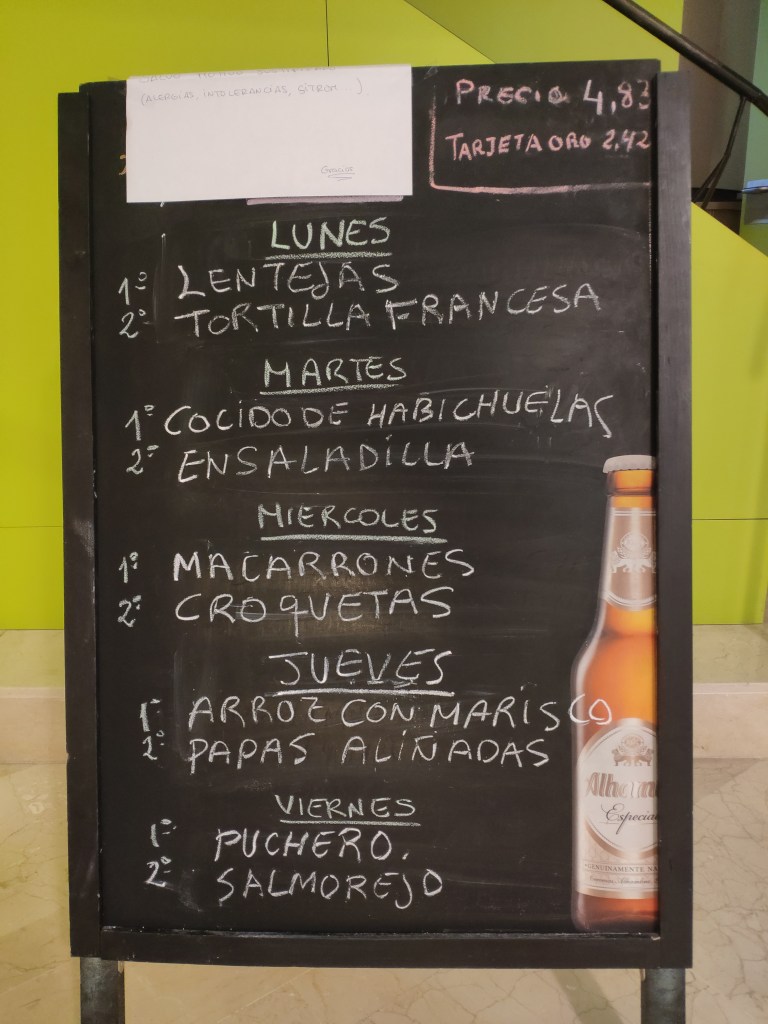 (ALERGIAS, INTOLERANCIAS, SITROM...)
Gracias
PRECIO 4,83
TARJETA ORO 2,42
LUNES
1º LENTEJAS
2º TORTILLA FRANCESA
MARTES
1º COCIDO DE HABICHUELAS
2º ENSALADILLA
MIERCOLES
1º MACARRONES
2º CROQUETAS
JUEVES
1º ARROZ CON MARISCO
2º PAPAS ALIÑADAS
VIERNES
1º PUCHERO.
2º SALMOREJO
Alham
Especial
GENUINAMENTE NA